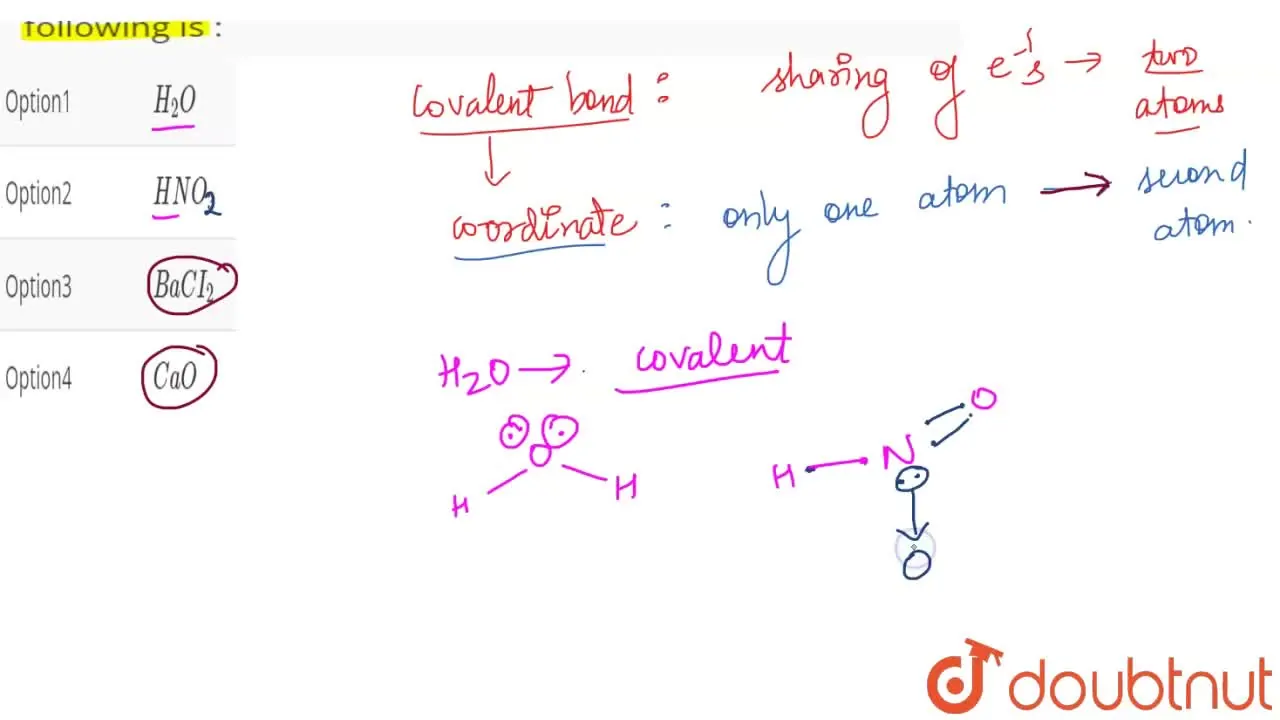 following is :
Option1 H₂O
Option2 HNO₂
Option3 BaCI₂
Option4 CaO
covalent bond : sharing of e⁻'s → two atoms
↓
coordinate : only one atom → second atom.
H₂O → covalent
O
H H
H N O
O
doubtnut